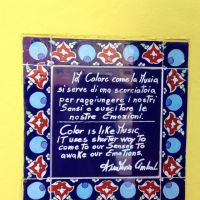 Il Colore come la Musica
si serve di una scorciatoia
per raggiungere i nostri
Sensi e suscitare le
nostre Emozioni.
Color is like Music,
it uses shorter way to
come to our Senses to
awake our Emotions.